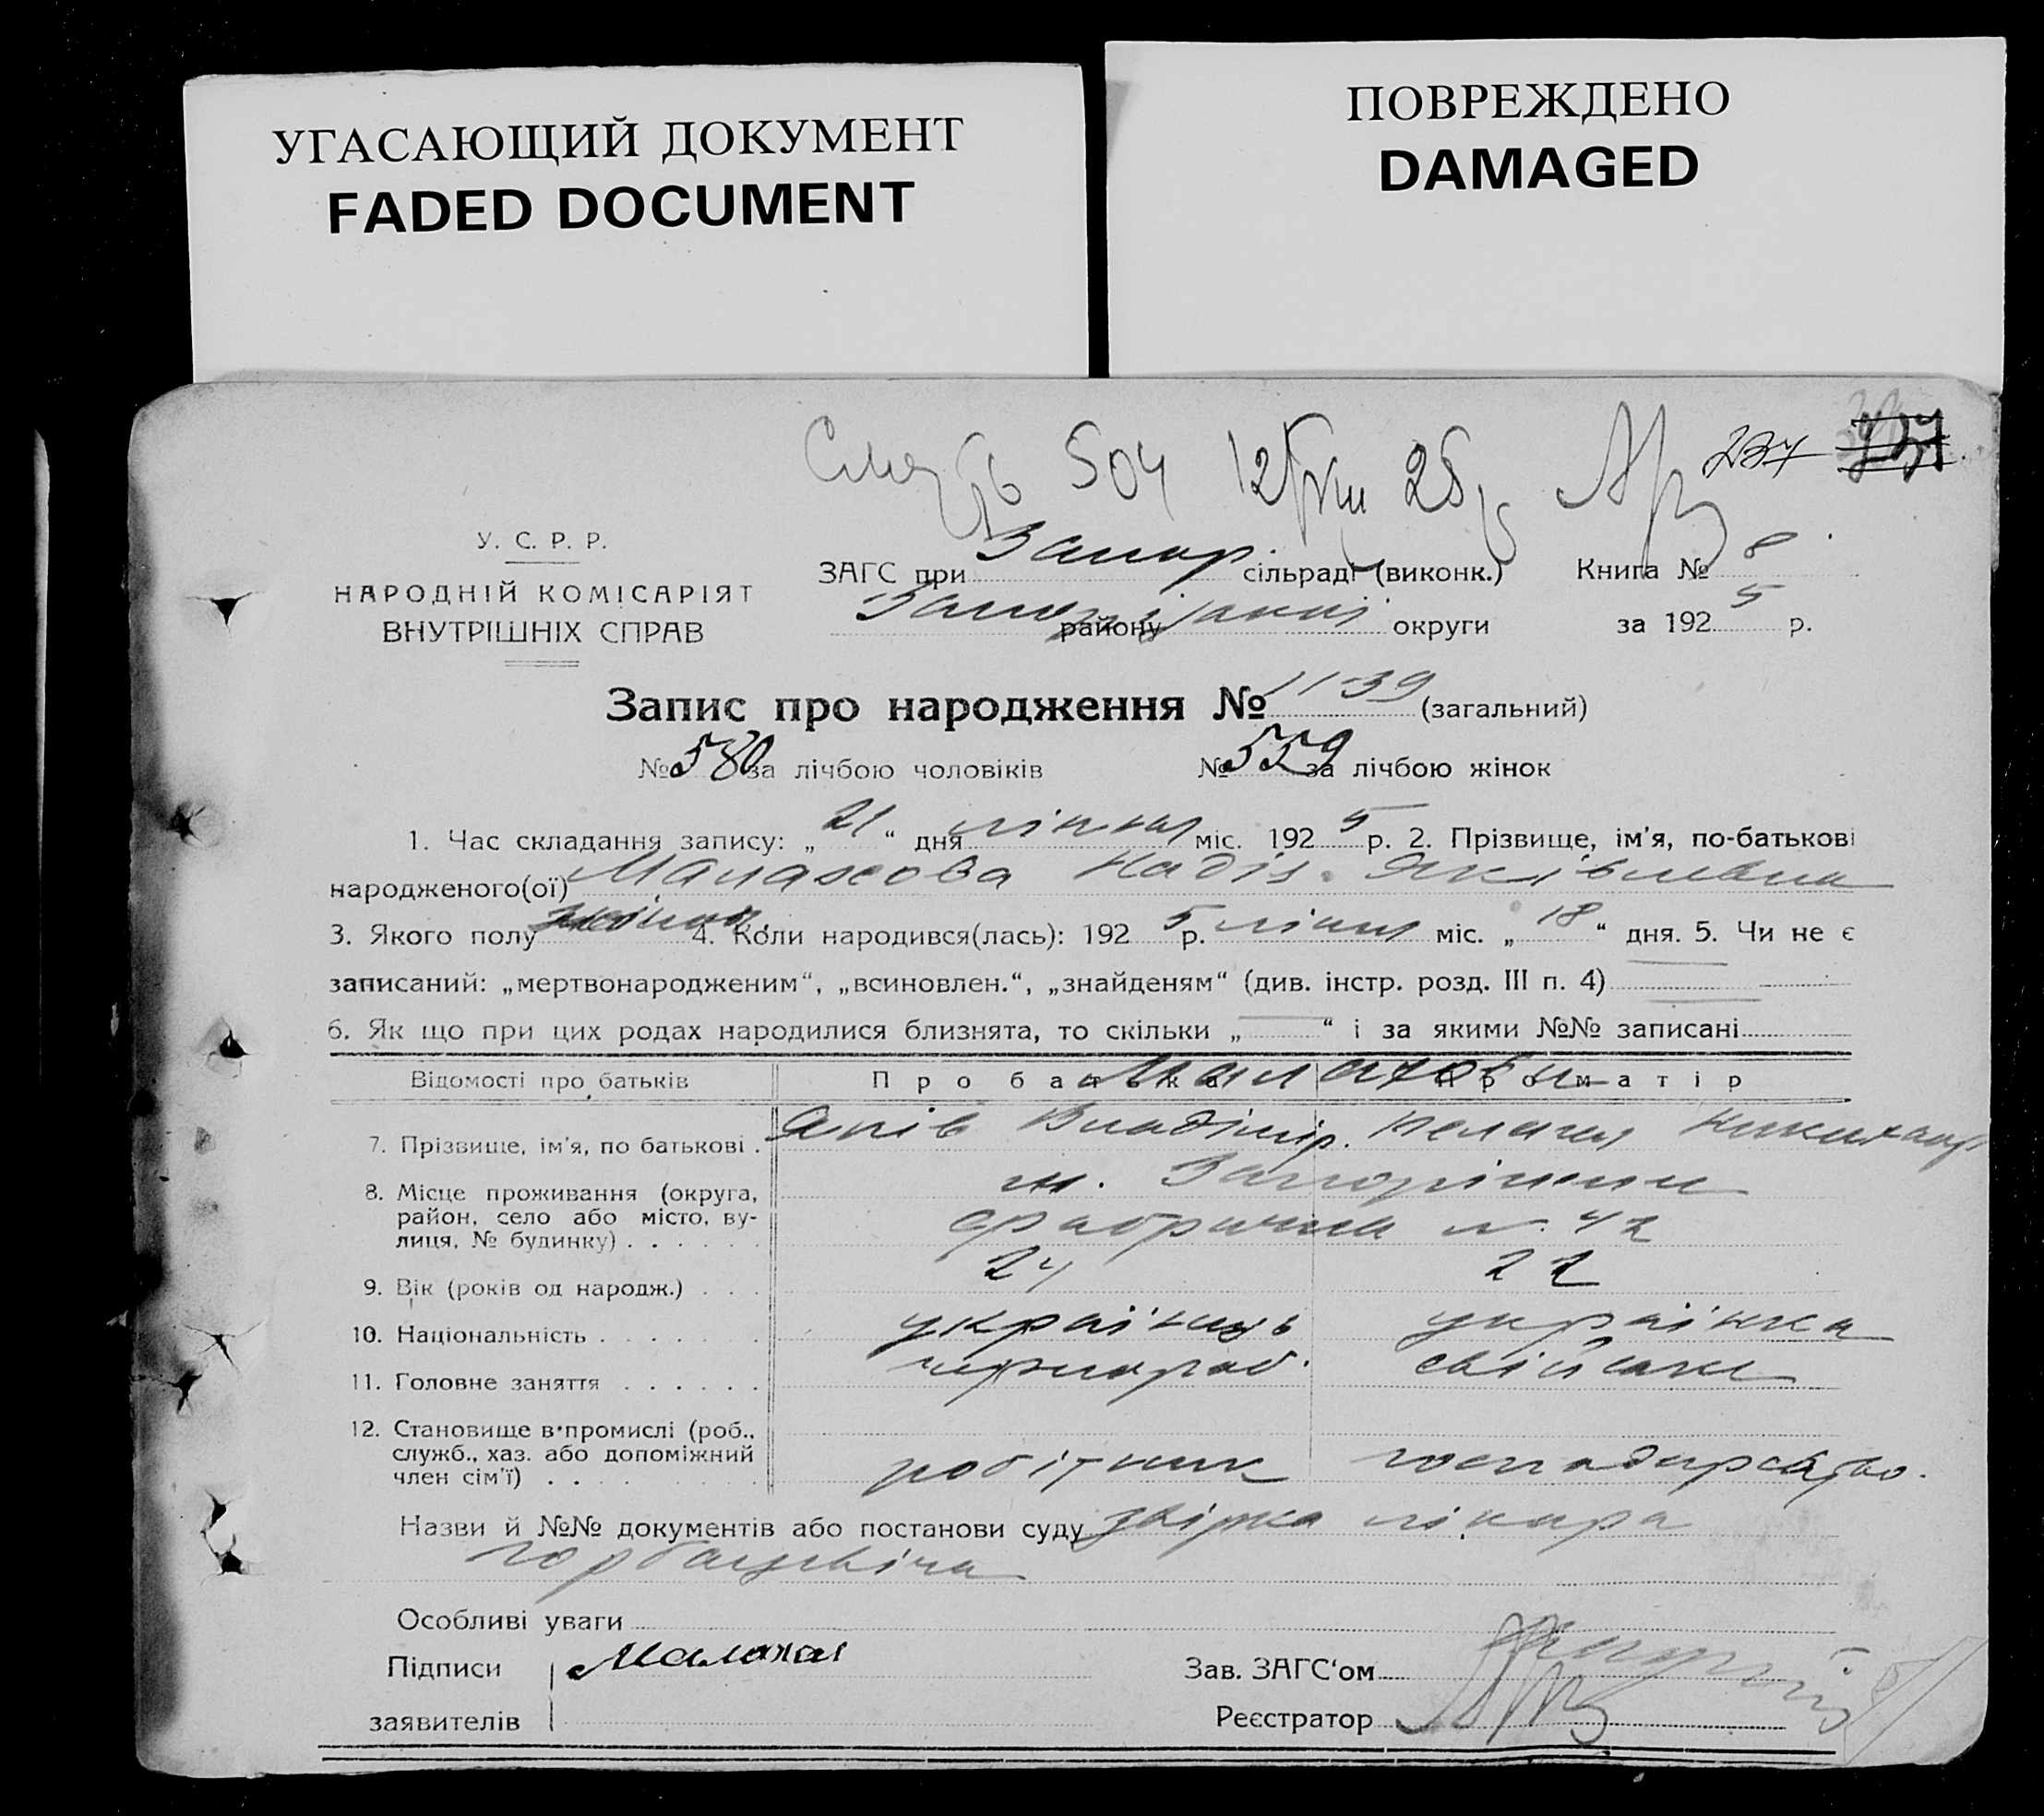 УГАСАЮЩИЙ ДОКУМЕНТ
FADED DOCUMENT
ПОВРЕЖДЕНО
DAMAGED
504 12/VIII 25
237
У. С. Р. Р.
НАРОДНІЙ КОМІСАРІЯТ
ВНУТРІШНІХ СПРАВ
ЗАГС при Запор. сільраді (виконк.) Книга № 8
району округи за 1925 р.
Запис про народження № 1139 (загальний)
№ 580 за лічбою чоловіків № 559 за лічбою жінок
1. Час складання запису: „21“ дня липня міс. 1925 р. 2. Прізвище, ім'я, по-батькові
народженого(ої) Малахова Надія Яківлевна
3. Якого полу жіноч. 4. Коли народився(лась): 1925 р. липня міс. „18“ дня. 5. Чи не є
записаний: „мертвонародженим“, „всиновлен.“, „знайденям“ (див. інстр. розд. III п. 4)
6. Як що при цих родах народилися близнята, то скільки „—“ і за якими №№ записані
Відомості про батьків Про батька Про матір
Малахови
7. Прізвище, ім'я, по батькові . Яків Владімір. Пелагея
8. Місце проживання (округа, район, село або місто, вулиця, № будинку) . . . . . . м. Запоріжжя
фабрична № 42
9. Вік (років од народж.) . . . 24 22
10. Національність . . . . . . українець українка
11. Головне заняття . . . . . . чернораб. свійське
12. Становище в промислі (роб.,
служб., хаз. або допоміжний
член сім'ї) . . . . . . робітник господарство.
Назви й №№ документів або постанови суду лікаря
Горбацевіча
Особливі уваги
Підписи Малахов Зав. ЗАГС'ом
заявителів Реєстратор